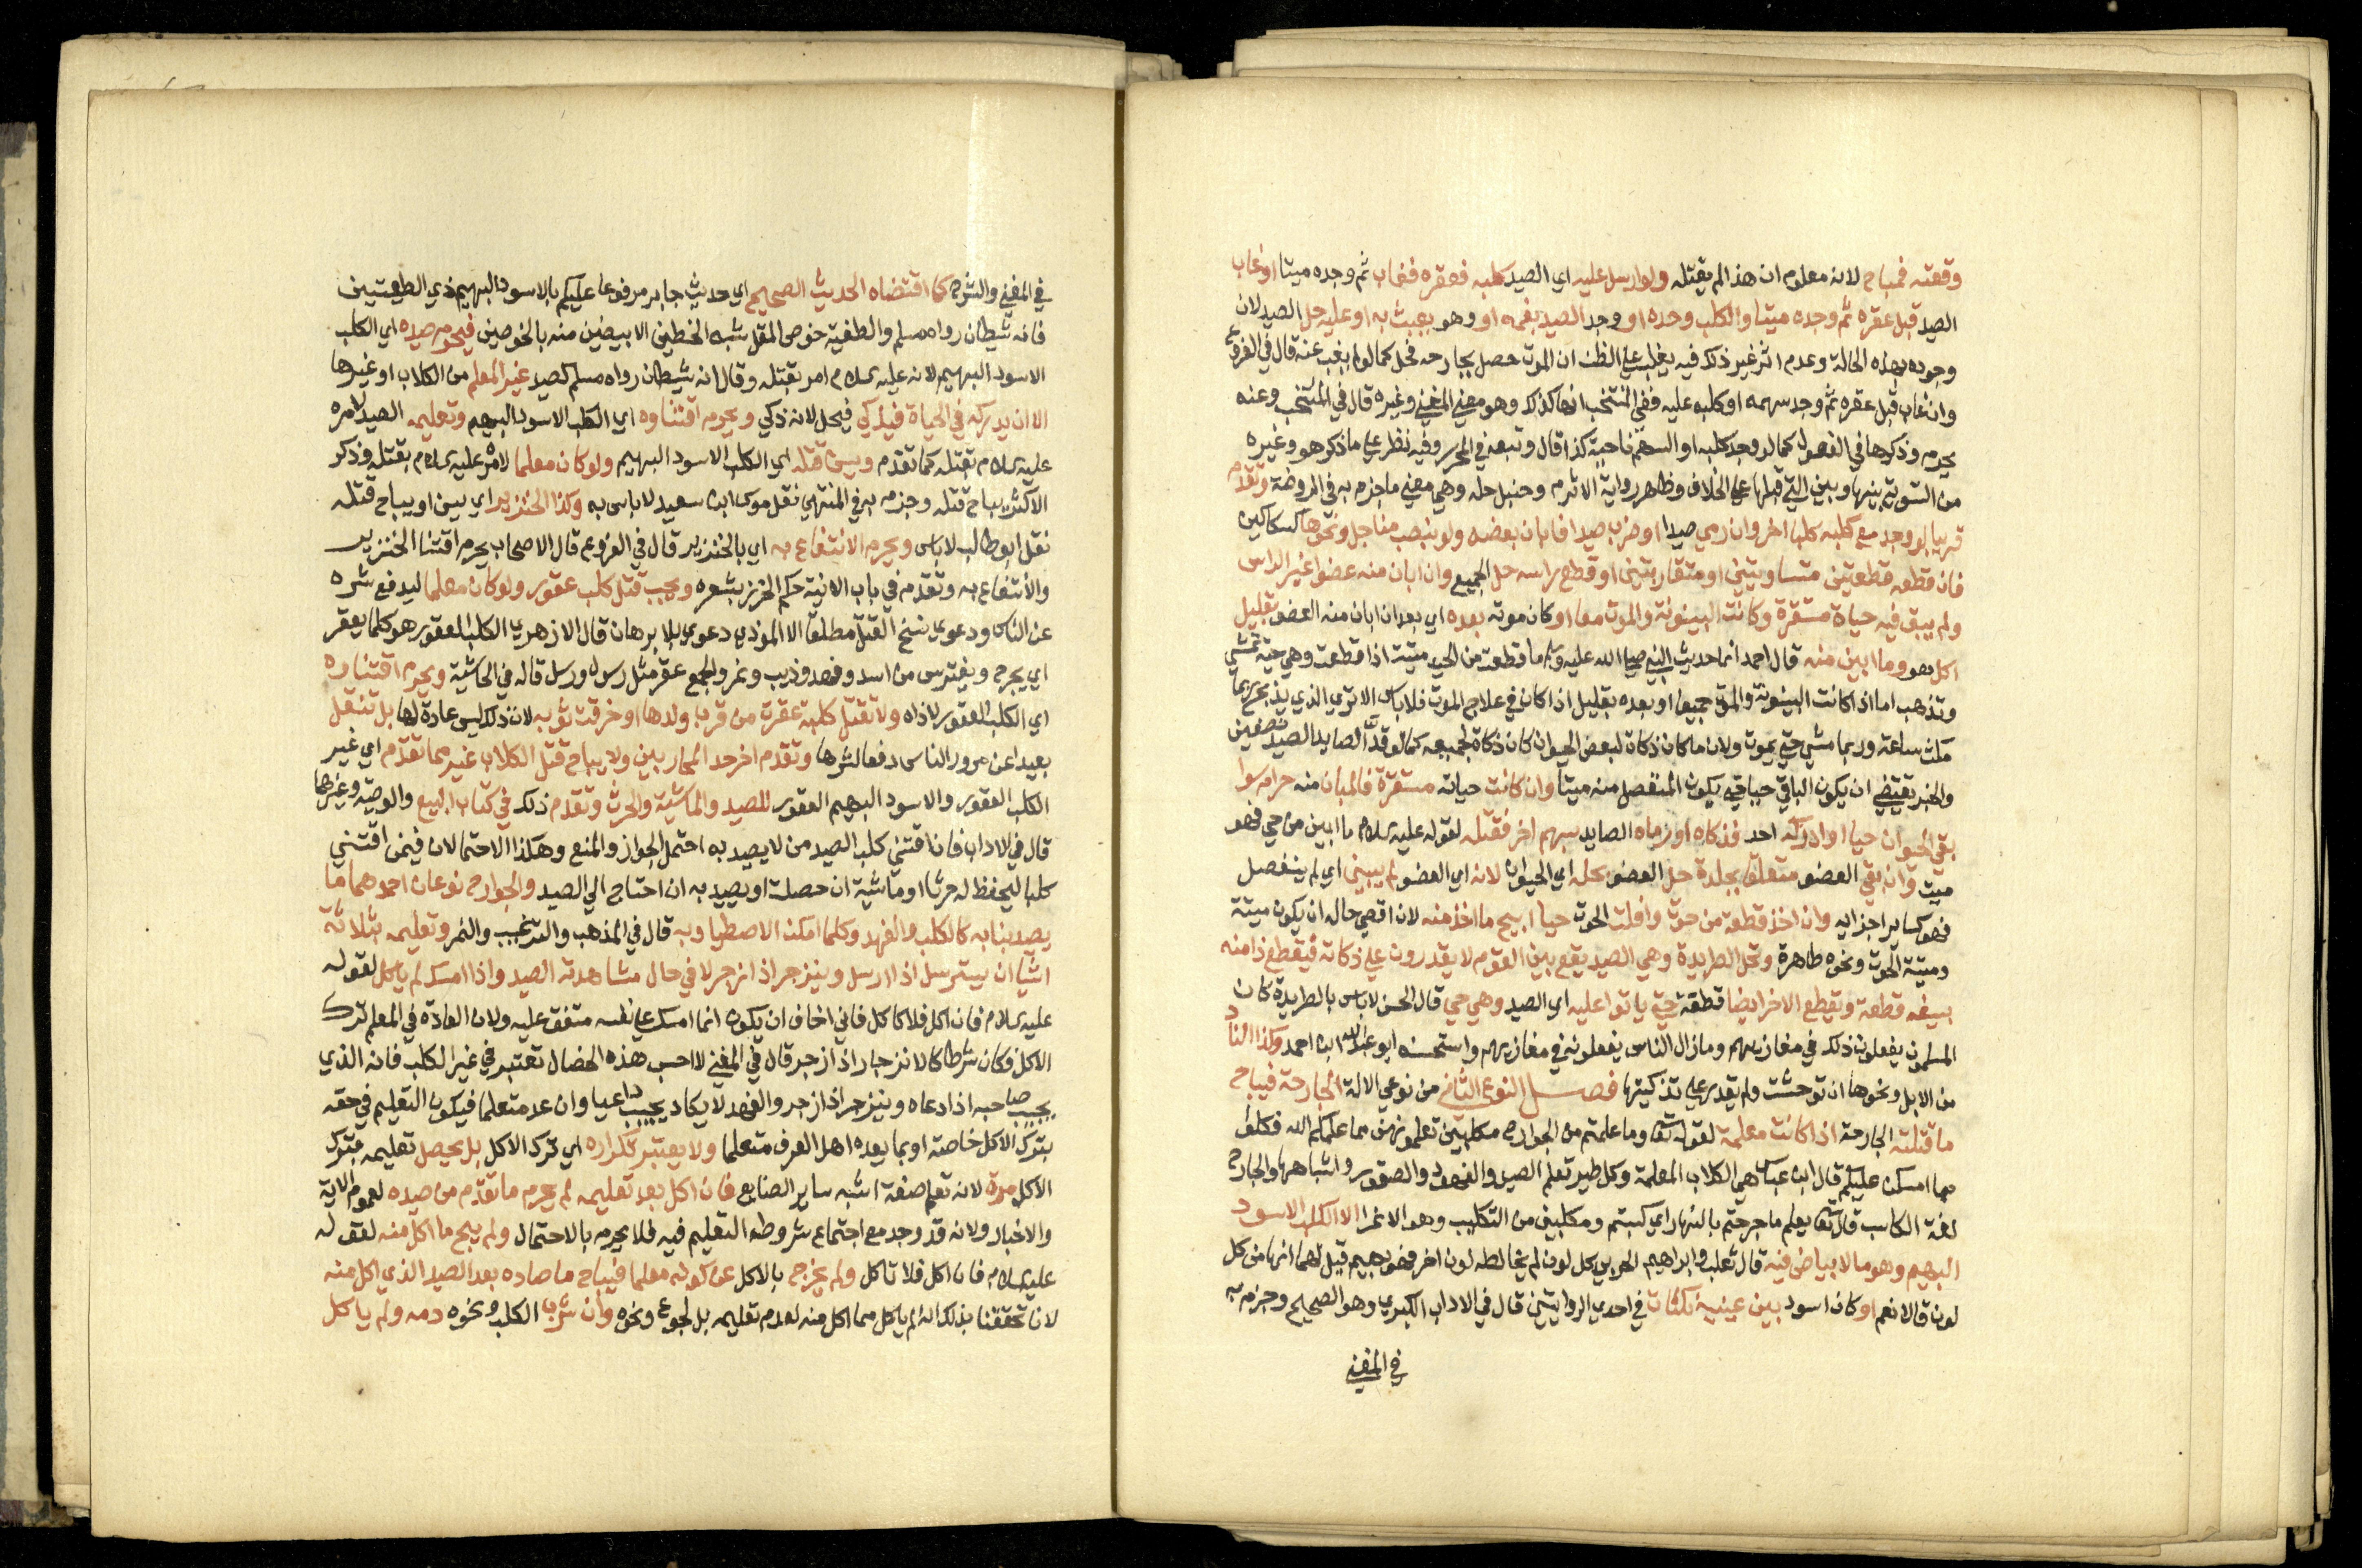 وقعته فمباح لانه معلوم ان هذا لم يقتله ولو ارسل عليه اي الصيد كلبه فعقره فغاب ثم وجده ميتا او غاب
الصيد قبل عقره ثم وجده ميتا والكلب وحده او وجد الصيد بفمه او وهو يعبث به او عليه حل الصيد لان
وجوده بهذه الحالة وعدم اثر غير ذلك فيه يغلب علي الظن ان الموت حصل بجارحه فحل كما لو لم يغب عنه قال في الفروع
وان غاب قبل عقره ثم وجد سهمه او كلبه عليه ففي المنتخب انها كذلك وهو معني المغني وغيره قال في المنتخب وعنه
يحرم وذكرها في الفصول كما لو وجد كلبه او السهم ناحية كذا قال وتبعه في المحرر وفيه نظر علي ما ذكر هو وغيره
من التسوية بينها وبين التي قبلها علي الخلاف وظاهر رواية الاثرم وحنبل حله وهي معني ما جزم به في الروضة وتقدم
قريبا لو وجد مع كلبه كلبا اخر وان رمي صيدا او ضرب صيدا فابان بعضه ولو بنصب مناجل ونحوها كسكاكين
فان قطعه قطعتين متساويتين او متقاربتين او قطع راسه حل الجميع وان ابان منه عضوا غير الراس
ولم يبق فيه حياة مستقرة وكانت البينونة والموت معا او كان موته بعده اي بعد ان ابان منه العضو بقليل
اكل هو وما ابين منه قال احمد انما حديث النبي صلي الله عليه وسلم ما قطعت من الحي ميتة اذا قطعت وهي حية تمشي
وتذهب اما اذا كانت البينونة والموت جميعا او بعده بقليل اذا كان في علاج الموت فلا باس الا تري الذي يذبح ربما
مكث ساعة وربما مشي حتي يموت ولان ما كان ذكاة لبعض الحيوان كان ذكاة لجميعه كما لو قد الصايد الصيد نصفين
والخبر يقتضي ان يكون الباقي حيا حتي يكون المنفصل منه ميتا وان كانت حياته مستقرة فالمبان منه حرام سوا
بقي الحيوان حيا او ادركه احد فذكاه او رماه الصايد بسهم اخر فقتله لقوله عليه السلام ما ابين من حي فهو
ميت وان بقي العضو متعلقا بجلدة حل العضو بحله اي الحيوان لانه اي العضو لم يبن اي لم ينفصل
فهو كساير اجزايه وان اخذ قطعة من حوت وافلت الحوت حيا ابيح ما اخذ منه لان اقصي حاله ان يكون ميتة
وميتة الحوت ونحوه طاهرة وتحل الطريدة وهي الصيد يقع بين القوم لا يقدرون علي ذكاته فيقطع ذا منه
بسيفه قطعة ويقطع الاخر ايضا قطعة حتي ياتوا عليه اي الصيد وهي حي قال الحسن لا باس بالطريدة كان
المسلمون يفعلون ذلك في مغازيهم وما زال الناس يفعلونه في مغازيهم واستحسنه ابو عبدالله احمد وكذا الناد
من الابل ونحوها ان توحشت ولم يقدر علي تذكيتها فصل النوع الثاني من نوعي الالة الجارحة فيباح
ما قتلته الجارحة اذا كانت معلمة لقوله تعا وما علمتم من الجوارح مكلبين تعلمونهن مما علمكم الله فكلوا
مما امسكن عليكم قال ابن عباس هي الكلاب المعلمة وكل طير تعلم الصيد والفهود والصقور واشباهها والجارح
لغة الكاسب قال تعا ويعلم ما جرحتم بالنهار اي كسبتم ومكلبين من التكليب وهو الاغرا الا الكلب الاسود
البهيم وهو ما لا بياض فيه قال ثعلب وابراهيم الحربي كل لون لم يخالطه لون اخر فهو بهيم قيل لهما انها من كل
لون قالا نعم او كان اسود بين عينيه نكتتان في احدي الروايتين قال في الاداب الكبري وهو الصحيح وجزم به
في المغني
في المغني والشرح كما اقتضاه الحديث الصحيح اي حديث جابر مرفوعا عليكم بالاسود البهيم ذي الطفيتين
فانه شيطان رواه مسلم والطفية خوص المقل شبه الخطين الابيضين منه بالخوصين فيحرم صيده اي الكلب
الاسود البهيم لانه عليه السلام امر بقتله وقال انه شيطان رواه مسلم كصيد غير المعلم من الكلاب او غيرها
الا ان يدركه في الحياة فيذكي فيحل لانه ذكي ويحرم اقتناوه اي الكلب الاسود البهيم وتعليمه الصيد لامره
عليه السلام بقتله كما تقدم ويسن قتله اي الكلب الاسود البهيم ولو كان معلما لامره عليه السلام بقتله وذكر
الاكثر يباح قتله وجزم به في المنتهي نقل موسي ابن سعيد لا باس به وكذا الخنزير اي يسن او يباح قتله
نقل ابو طالب لا باس ويحرم الانتفاع به اي بالخنزير قال في الفروع قال الاصحاب يحرم اقتنا الخنزير
والانتفاع به وتقدم في باب الانية حكم الخرز بشعره ويجب قتل كلب عقور ولو كان معلما ليدفع شره
عن الناس ودعوي نسخ القتل مطلقا الا الموذي دعوي بلا برهان قال الازهري الكلب العقور هو كلما يعقر
اي يجرح ويفترس من اسد وفهد وذيب ونمر والجمع عقر مثل رسول ورسل قاله في الحاشية ويحرم اقتناوه
اي الكلب العقور لاذاه ولا تقتل كلبة عقرت من قرب ولدها او خرقت ثوبه لان ذلك ليس عادة لها بل تنقل
بعيدا عن مرور الناس دفعا لشرها وتقدم اخر حد المحاربين ولا يباح قتل الكلاب غير مما تقدم اي غير
الكلب العقور والاسود البهيم العقور للصيد والماشية والحرث وتقدم ذلك في كتاب البيع والوصية وغيرهما
قال في الاداب فان اقتني كلب الصيد من لا يصيد به احتمل الجواز والمنع وهكذا الاحتمالان فيمن اقتني
كلبا ليحفظ له حرثا او ماشية ان حصلت او يصيد به ان احتاج الي الصيد والجوارح نوعان احدهما ما
يصيد بنابه كالكلب والفهد وكلما امكن الاصطياد به قال في المذهب والترغيب والنمر وتعليمه بثلاثة
اشيا ان يسترسل اذا ارسل وينزجر اذا زجر لا في حال مشاهدته الصيد واذا امسك لم ياكل لقوله
عليه السلام فان اكل فلا تاكل فاني اخاف ان يكون انما امسك علي نفسه متفق عليه ولان العادة في المعلم ترك
الاكل فكان شرطا كالانزجار اذا زجر قال في المغني لا احسب هذه الخصال تعتبر في غير الكلب فانه الذي
يجيب صاحبه اذا دعاه وينزجر اذا زجر والفهد لا يكاد يجيب داعيا وان عد متعلما فيكون التعليم في حقه
بترك الاكل خاصة او بما يعده اهل العرف متعلما ولا يعتبر تكراره اي ترك الاكل بل يحصل تعليمه بترك
الاكل مرة لانه تعلم صنعة اشبه ساير الصنايع فان اكل بعد تعليمه لم يحرم ما تقدم من صيده لعموم الاية
والاخبار ولانه قد وجد مع اجتماع شروط التعليم فيه فلا يحرم بالاحتمال ولم يبح ما اكل منه لقوله
عليه السلام فان اكل فلا تاكل ولم يخرج بالاكل عن كونه معلما فيباح ما صاده بعد الصيد الذي اكل منه
لانا تحققنا بذلك انه لم ياكل مما اكل منه لعدم تعليمه بل لجوع ونحوه وان شرب الكلب ونحوه دمه ولم ياكل